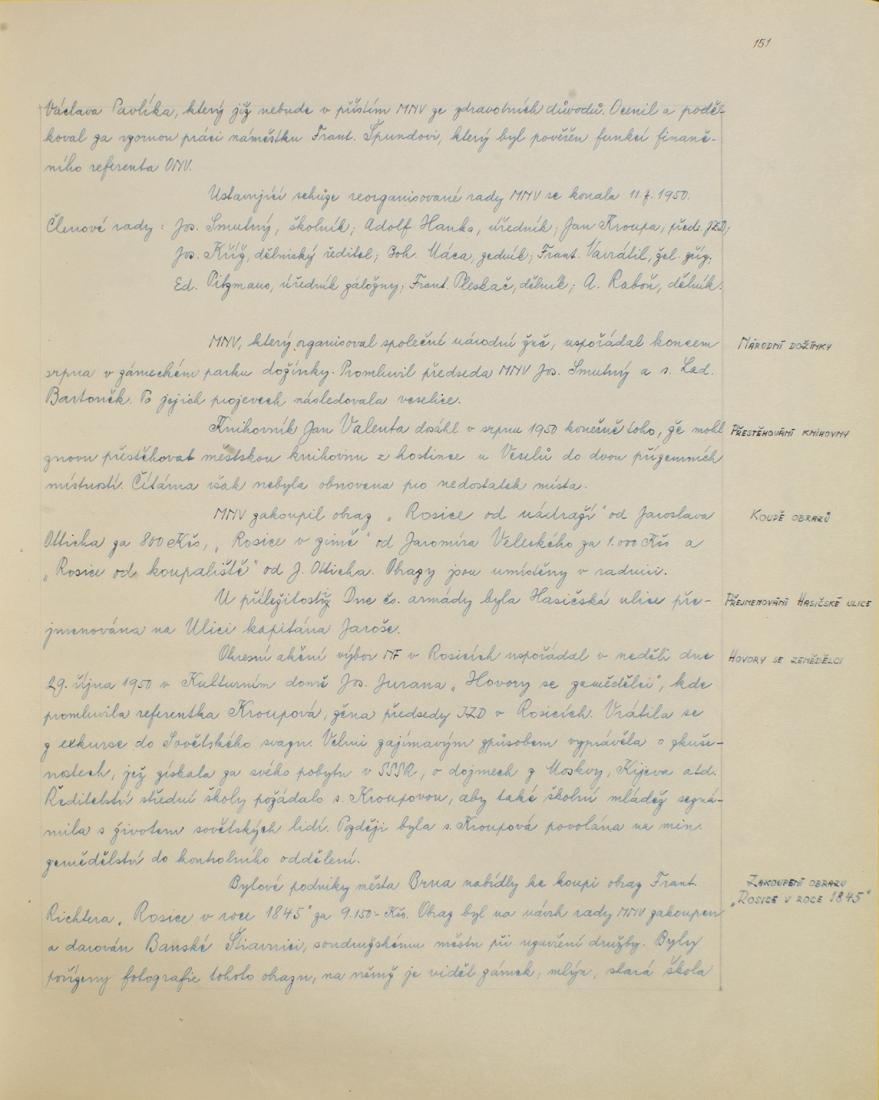 151
Václava Pavlíka, který již nebude v příštím MNV ze zdravotních důvodů. Ocenil a podě-
koval za vzornou práci náměstku Frant. Špundovi, který byl pověřen funkcí finanč-
ního referenta ONV.
Ustavující schůze reorganisované rady MNV se konala 11.7.1950.
Členové rady: Jos. Smutný, školník; Adolf Hanks, úředník; Jan Kroupa, předs. JZD;
Jos. Kříž, dělnický ředitel; Boh. Máca, zedník; Frant. Navrátil, žel. zříz.
Ed. Pitzmann, úředník záložny; Frant. Pleskač, dělník; A. Raboň, dělník.
MNV, který organisoval společné národní žně, uspořádal koncem
srpna v zámeckém parku dožínky. Promluvil předseda MNV Jos. Smutný a s. Lad.
Bartoněk. Po jejich projevech následovala veselice.
Národní dožínky
Knihovník Jan Valenta dosáhl v srpnu 1950 konečně toho, že mohl
znovu přestěhovat městskou knihovnu z hostince u Veselů do dvou přízemních
místností. Čítárna však nebyla obnovena pro nedostatek místa.
Přestěhování knihovny
MNV zakoupil obraz „Rosice od nádraží" od Jaroslava
Otticha za 800 Kčs, „Rosice v zimě" od Jaromíra Veleckého za 1.000 Kčs a
„Rosice od koupaliště" od J. Otticha. Obrazy jsou umístěny v radnici.
Koupě obrazů
U příležitosti Dne čs. armády byla Hasičská ulice pře-
jmenována na Ulici kapitána Jaroše.
Přejmenování Hasičské ulice
Okresní akční výbor NF v Rosicích uspořádal v neděli dne
29. října 1950 v Kulturním domě Jos. Jurana „Hovory se zemědělci", kde
promluvila referentka Kroupová, žena předsedy JZD v Rosicích. Vrátila se
z exkurse do Sovětského svazu. Velmi zajímavým způsobem vyprávěla o zkuše-
nostech, jež získala za svého pobytu v SSSR, o dojmech z Moskvy, Kijeva atd.
Ředitelství střední školy požádalo s. Kroupovou, aby také školní mládež sezná-
mila s životem sovětských lidí. Později byla s. Kroupová povolána na min.
zemědělství do kontrolního oddělení.
Hovory se zemědělci
Bytové podniky města Brna nabídly ke koupi obraz Frant.
Richtera „Rosice v roce 1845" za 9.150- Kčs. Obraz byl na návrh rady MNV zakoupen
a darován Banské Štiavnici, soudružskému městu při uzavření družby. Byly
pořízeny fotografie tohoto obrazu, na němž je viděl zámek, mlýn, stará škola
Zakoupení obrazu
„Rosice v roce 1845"